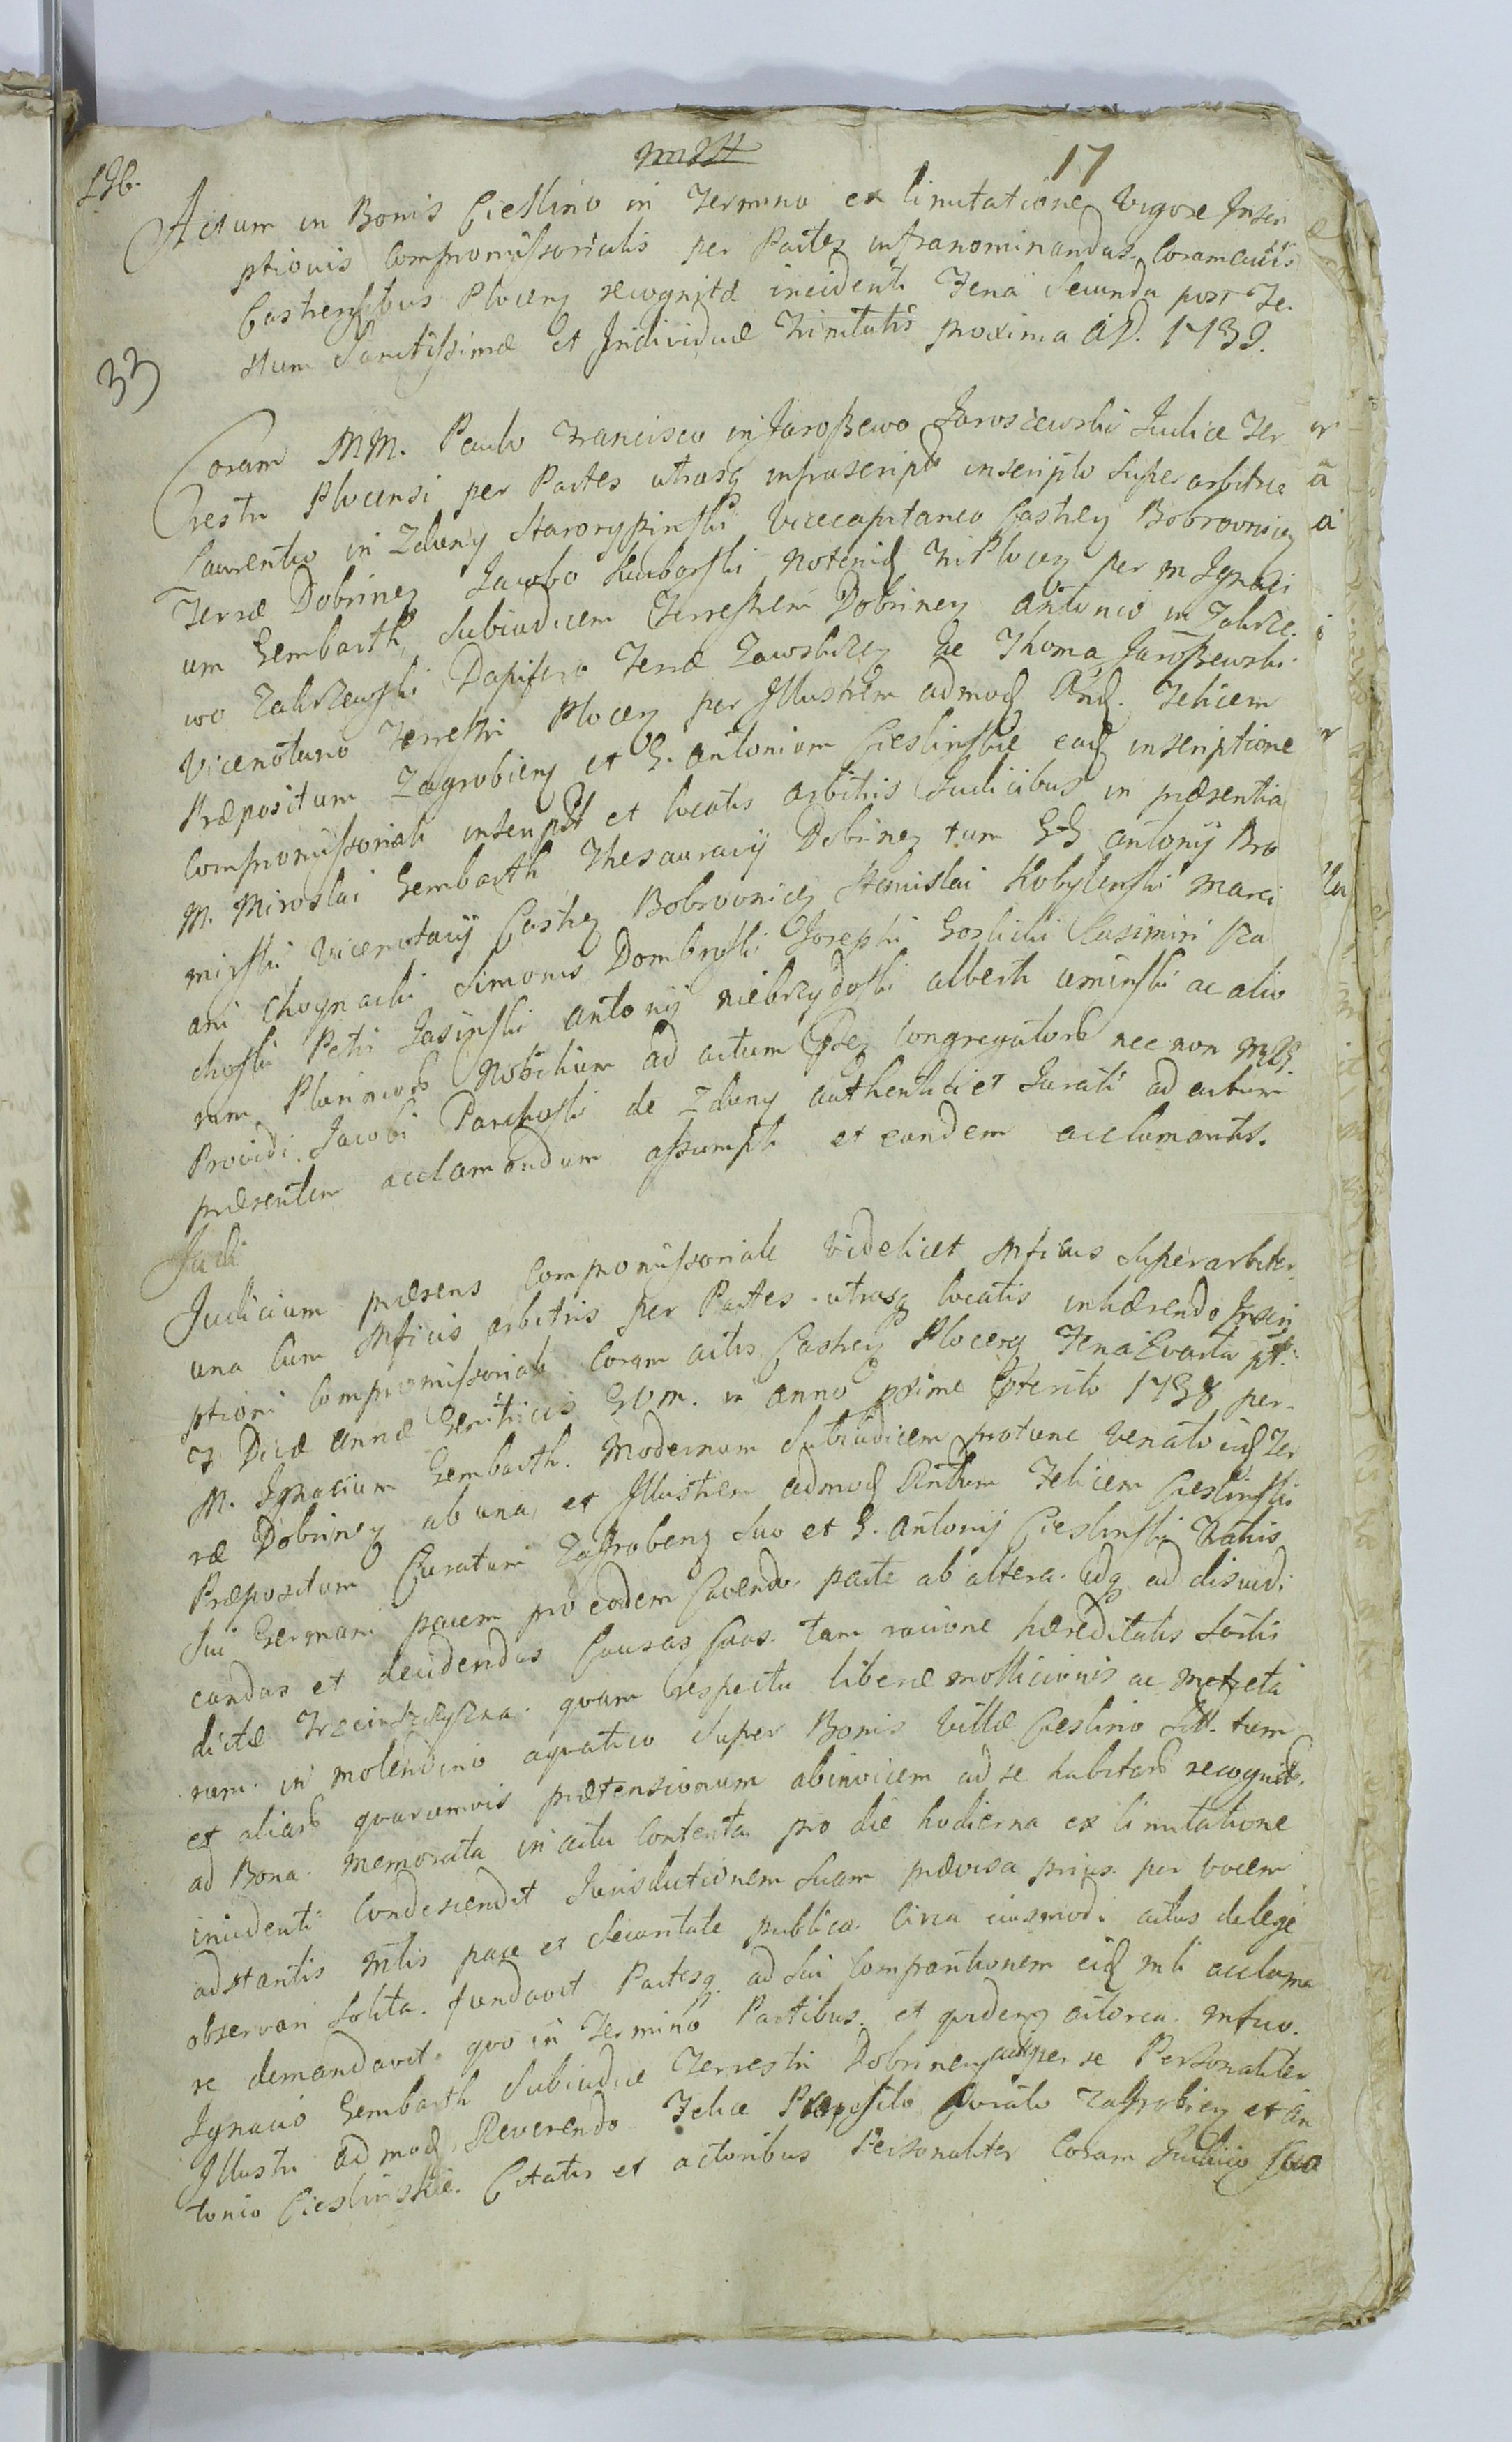 17
33
Actum in Bonis Cieslino in Termino ex limitatione vigore Inscri
ptionis Compromissorialis per Partes infranominandas Coram actis
Castrensibus Plocen recognitæ incidenti Feria Secunda post Fe.
stum Sanctissimæ et Individuæ Trinitatis proxima AD. 1739.
Coram MM. Paulo Francisco in Jaroszewo Jaroszewski Judice Ter
restri Plocensi per Partes utrasq infrascript inscripto Superarbitro
Laurentio in Zduny Starorypinski Vicecapitaneo Castren Bobrovnicen
Terræ Dobrinen Jacobo Kuborski Plocen per M Ignaci
um Gembarth Subiudicem Terrestrem Dobrinen Antonio in Zakrze.
wo Zakrzewski Dapifero Terræ Zawskrzen ac Thoma Jaroszewski
Vicenotario Terrestri Plocen per Illustrem admod Rnd. Felicem
Præpositum Zagrobien et G. Antonium Cieslinskie ead inscriptione
Compromissoriali inscript et locatis Arbitris Judicibus in præsentia
M. Miroslai Gembarth Thesaurarij Dobrinen tum GG Antonij Bro
mirski Vicenotarij Castren Bobrovnicen Stanislai Kobylenski Marci
ani Choynacki Simonis Dombrski Josephi Gorlicki Casimiri Ra
choski Petri Jasinski Antonij Niebrzydoski Alberti Uminski ac alio
rum Plurimorum Nobilium ad actum Congregatorum nec non
Providi Jacobi Parchoski de Zduny authentici et Jurati ad actum
præsentem acclamandum assumpti et eundem acclamantis.
Judi
Judicium præsens Compromissoriale videlicet Mficus Superarbiter
una cum Mficis arbitris per Partes utrasq locatis inhærendo Inscri
ptioni Compromissoriali Coram actis Castren Plocen Feria Quarta pt.
Divæ Annæ Genitricis GVM. in anno pxime Pterito 1738 per
M. Ignacium Gembarth. Modernum Subiudicem protunc Venato Ter
ræ Dobrinen ab una et Illustrem admod Rndum Felicem Cieslinski
Præpositum Curatum Zagrobens Suo et G. Antonij Cieslinski Fratris
Sui Germani pacem pro eodem Cavendo parte ab altera. adq ad disiudi
candas et decidendas Causas Suas. tam racione hæreditatis Sortis
dictæ quam respectu liberæ molicionis ac metreta
rum in molendino aquatico Super Bonis Villæ Cieslino Sitt. tum
et aliarum quarumvis prætensionum abinvicem ad se habitarum recognit.
ad Bona memorata in actu Contenta pro die hodierna ex limitatione
incidenti Condescendit Jurisdictionem Suam prævisa prius per vocem
adstantis Mtlis pace et Securitate publica Circa eiusmodi actus de lege
observari Solita. fundavit Partesq ad Sui Comparitionem eid mli acclama
re demandavit. quo in Termino Partibus et quidem actorea Mfico.
Ignacio Gembarth Subiudice Terrestri Dobrinen per se Personaliter
Illustri admod Reverendo Felice Præposito Curato Zagrobien et An
tonio Cieslinskie. Citatis et actoribus Personaliter Coram Judicio Suo